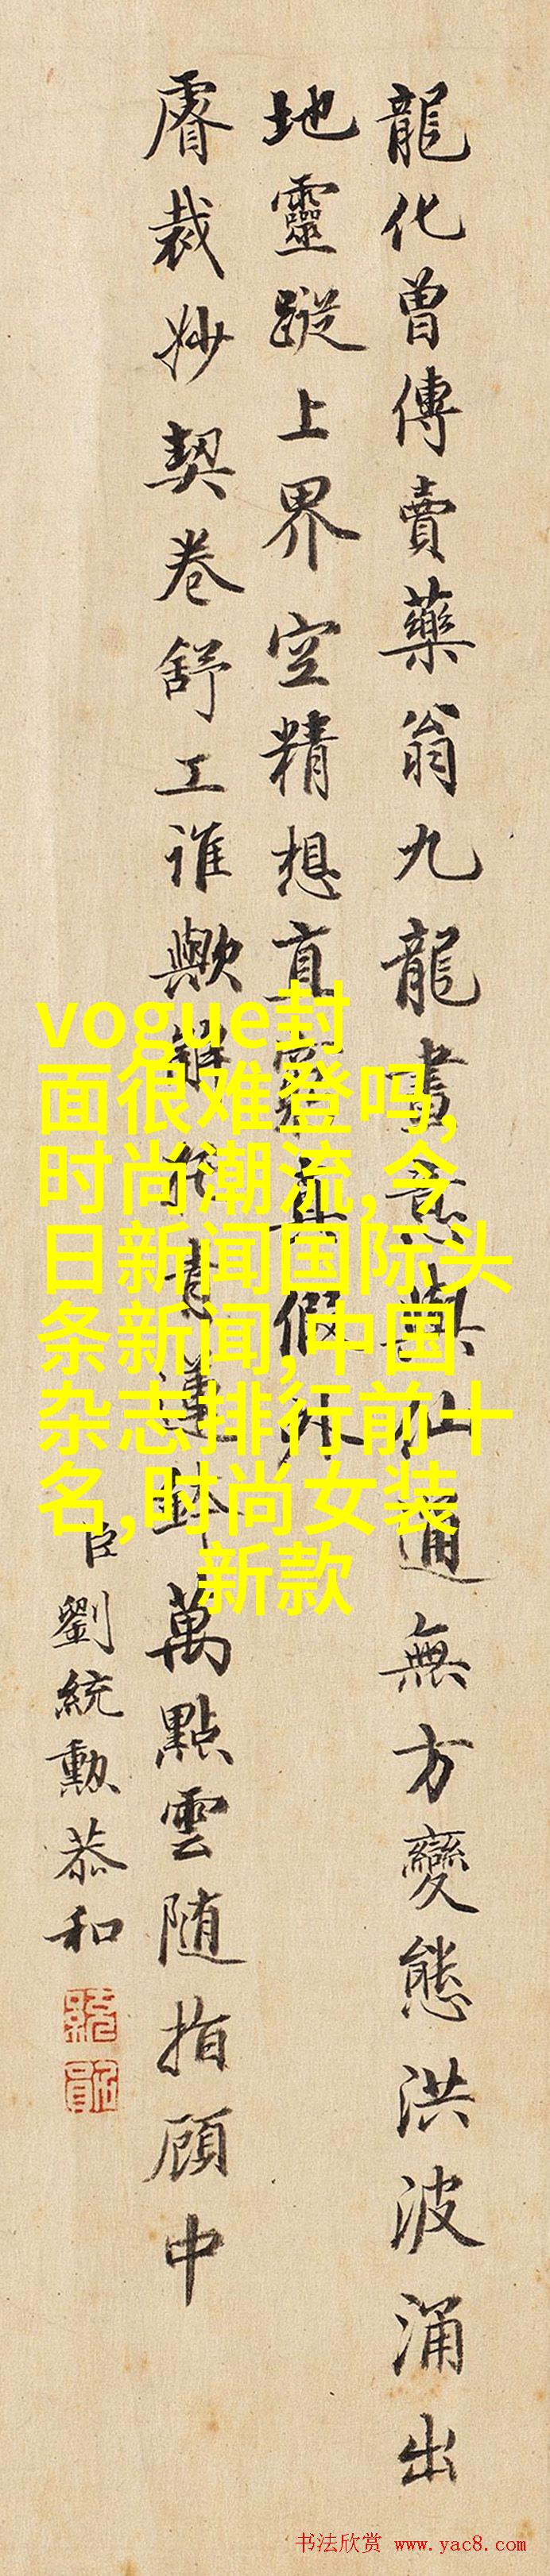 龍化曾傳賣藥翁九龍畫意與仙通無方變態洪波涌出
地靈蹤上界空精想直窮真假外
睿裁妙契卷舒工誰歟萬點雲随指顧中
臣劉統勲恭和
vogue封
面很难登吗,
时尚潮流,今
日新闻国际头
条新闻,中国
杂志排行前十
名,时尚女装
新款
书法欣赏 www.yac8.com